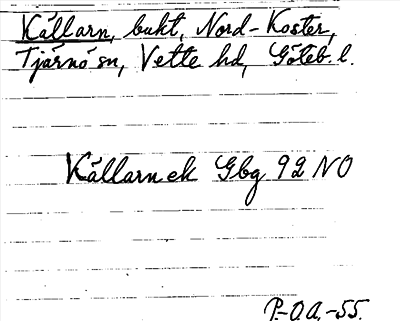 Källarn, bukt, Nord-Koster,
Tjärnö sn, Vette hd, Göteb. l.
Källarn ek Gbg 92 NO
P.-O.A.-55.